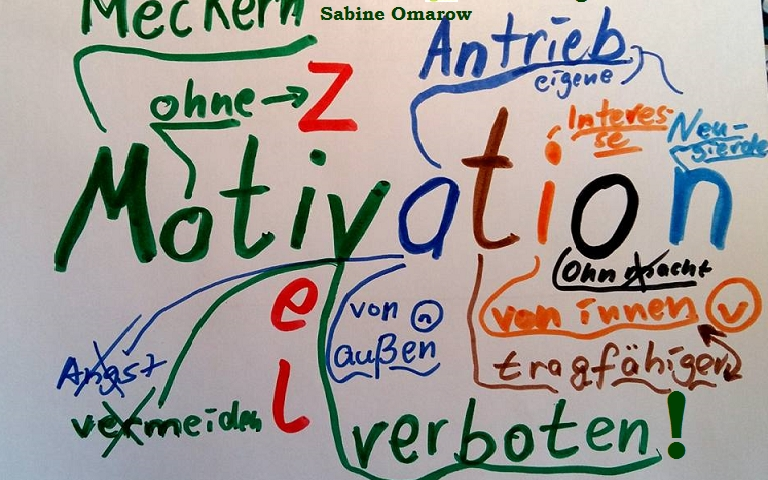 Sabine Omarow
Meckern
Antrieb
eigene
ohne → Z
Interes-
se
Neu-
gierde
Motivation
Ohnmacht
e
von
außen
von innen
Angst
tragfähiger
l
vermeiden
verboten!